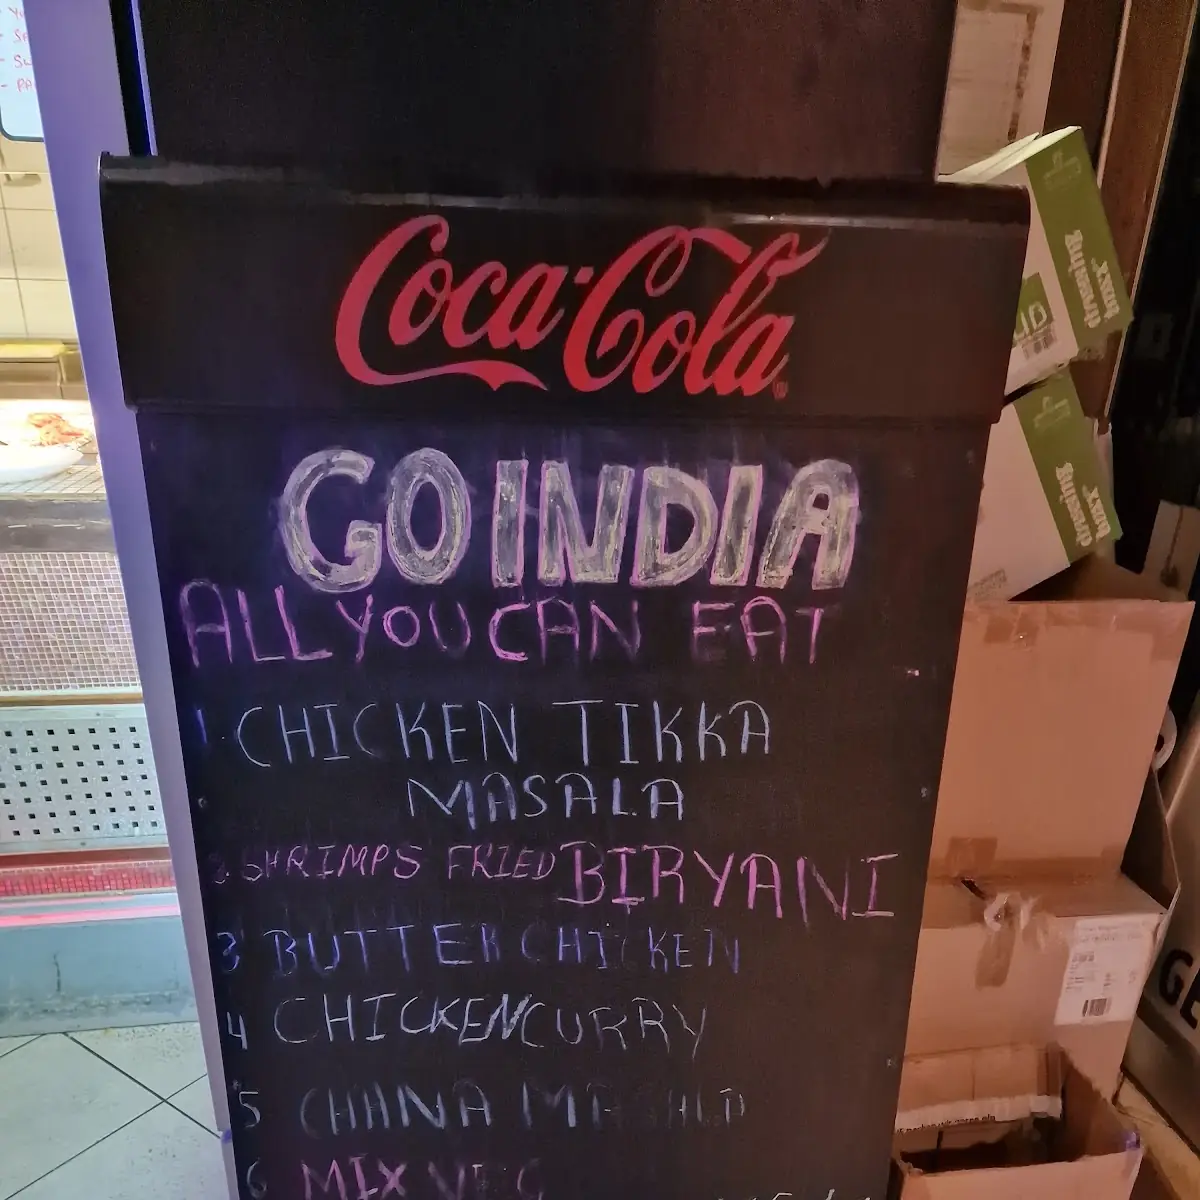 Coca-Cola
GO INDIA
ALL YOU CAN EAT
1. CHICKEN TIKKA
MASALA
2. SHRIMPS FRIED BIRYANI
3 BUTTER CHICKEN
4 CHICKEN CURRY
5 CHANA MASALA
6 MIX VEG
dressing
boxx
dressing
boxx